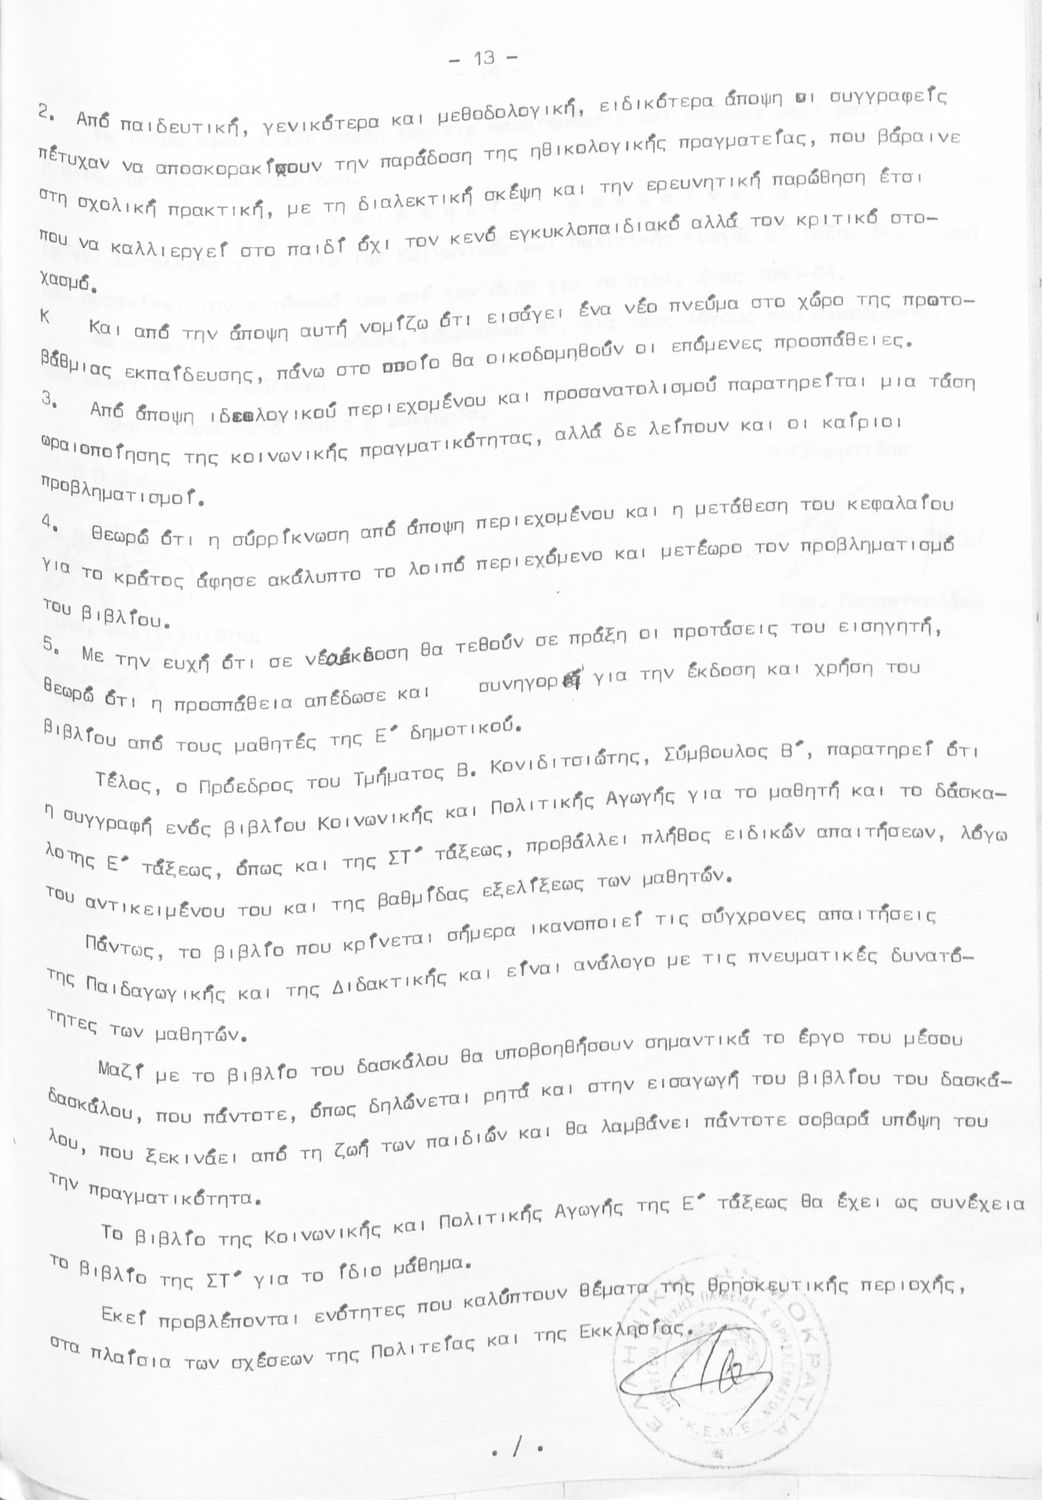 - 13 -
2. Από παιδευτική, γενικότερα και μεθοδολογική, ειδικότερα άποψη οι συγγραφείς
πέτυχαν να αποσκορακίσουν την παράδοση της ηθικολογικής πραγματείας, που βάραινε
στη σχολική πρακτική, με τη διαλεκτική σκέψη και την ερευνητική παρώθηση έτσι
που να καλλιεργεί στο παιδί όχι τον κενό εγκυκλοπαιδιακό αλλά τον κριτικό στο-
χασμό.
Κ Και από την άποψη αυτή νομίζω ότι εισάγει ένα νέο πνεύμα στο χώρο της πρωτο-
βάθμιας εκπαίδευσης, πάνω στο οποίο θα οικοδομηθούν οι επόμενες προσπάθειες.
3. Από άποψη ιδεολογικού περιεχομένου και προσανατολισμού παρατηρείται μια τάση
ωραιοποίησης της κοινωνικής πραγματικότητας, αλλά δε λείπουν και οι καίριοι
προβληματισμοί.
4. Θεωρώ ότι η σύρρίκνωση από άποψη περιεχομένου και η μετάθεση του κεφαλαίου
για το κράτος άφησε ακάλυπτο το λοιπό περιεχόμενο και μετέωρο τον προβληματισμό
του βιβλίου.
5. Με την ευχή ότι σε νέα έκδοση θα τεθούν σε πράξη οι προτάσεις του εισηγητή,
θεωρώ ότι η προσπάθεια απέδωσε και συνηγορεί για την έκδοση και χρήση του
βιβλίου από τους μαθητές της Ε΄ δημοτικού.
Τέλος, ο Πρόεδρος του Τμήματος Β. Κονιδιτσιώτης, Σύμβουλος Β΄, παρατηρεί ότι
η συγγραφή ενός βιβλίου Κοινωνικής και Πολιτικής Αγωγής για το μαθητή και το δάσκα-
λο της Ε΄ τάξεως, όπως και της ΣΤ΄ τάξεως, προβάλλει πλήθος ειδικών απαιτήσεων, λόγω
του αντικειμένου του και της βαθμίδας εξελίξεως των μαθητών.
Πάντως, το βιβλίο που κρίνεται σήμερα ικανοποιεί τις σύγχρονες απαιτήσεις
της Παιδαγωγικής και της Διδακτικής και είναι ανάλογο με τις πνευματικές δυνατό-
τητες των μαθητών.
Μαζί με το βιβλίο του δασκάλου θα υποβοηθήσουν σημαντικά το έργο του μέσου
δασκάλου, που πάντοτε, όπως δηλώνεται ρητά και στην εισαγωγή του βιβλίου του δασκά-
λου, που ξεκινάει από τη ζωή των παιδιών και θα λαμβάνει πάντοτε σοβαρά υπόψη του
την πραγματικότητα.
Το βιβλίο της Κοινωνικής και Πολιτικής Αγωγής της Ε΄ τάξεως θα έχει ως συνέχεια
το βιβλίο της ΣΤ΄ για το ίδιο μάθημα.
Εκεί προβλέπονται ενότητες που καλύπτουν θέματα της θρησκευτικής περιοχής,
στα πλαίσια των σχέσεων της Πολιτείας και της Εκκλησίας.
ΕΛΛΗΝΙΚΗ ΔΗΜΟΚΡΑΤΙΑ
Κ.Ε.Μ.Ε.
. / .